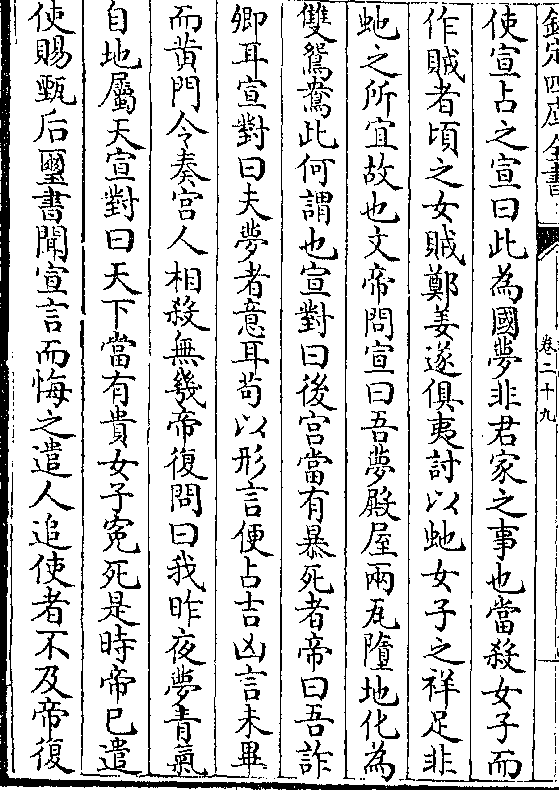 欽定四庫全書
卷二十九
使宣占之宣曰此為國夢非君家之事也當殺女子而
作賊者頃之女賊鄭姜遂俱夷討以虵女子之祥足非
虵之所宜故也文帝問宣曰吾夢殿屋兩瓦墮地化為
雙鴛鴦此何謂也宣對曰後宮當有暴死者帝曰吾詐
卿耳宣對曰夫夢者意耳苟以形言便占吉凶言未畢
而黃門令奏宮人相殺無幾帝復問曰我昨夜夢青氣
自地屬天宣對曰天下當有貴女子冤死是時帝已遣
使賜甄后璽書聞宣言而悔之遣人追使者不及帝復